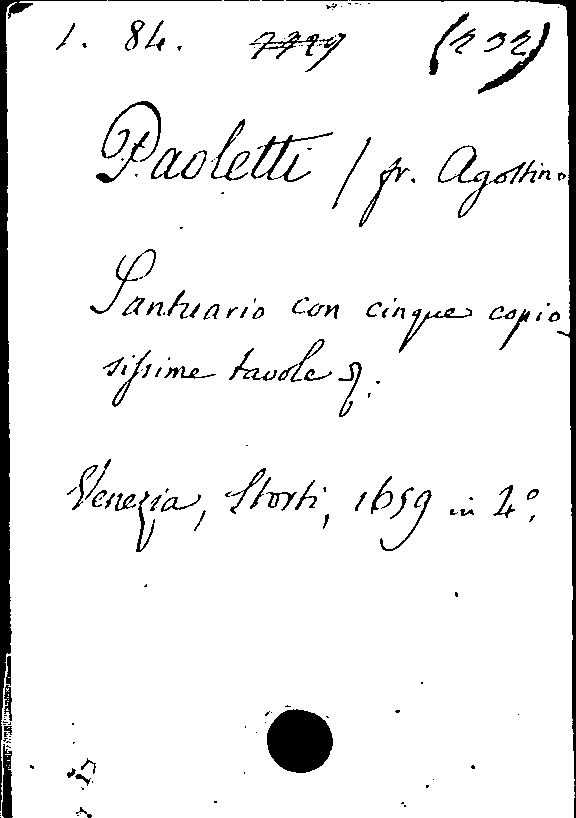 1. 84. 7729 (232)
Paoletti / fr. Agostino
Santuario con cinque copio_
sissime tavole &.
Venezia, Storti, 1659 in 4°.